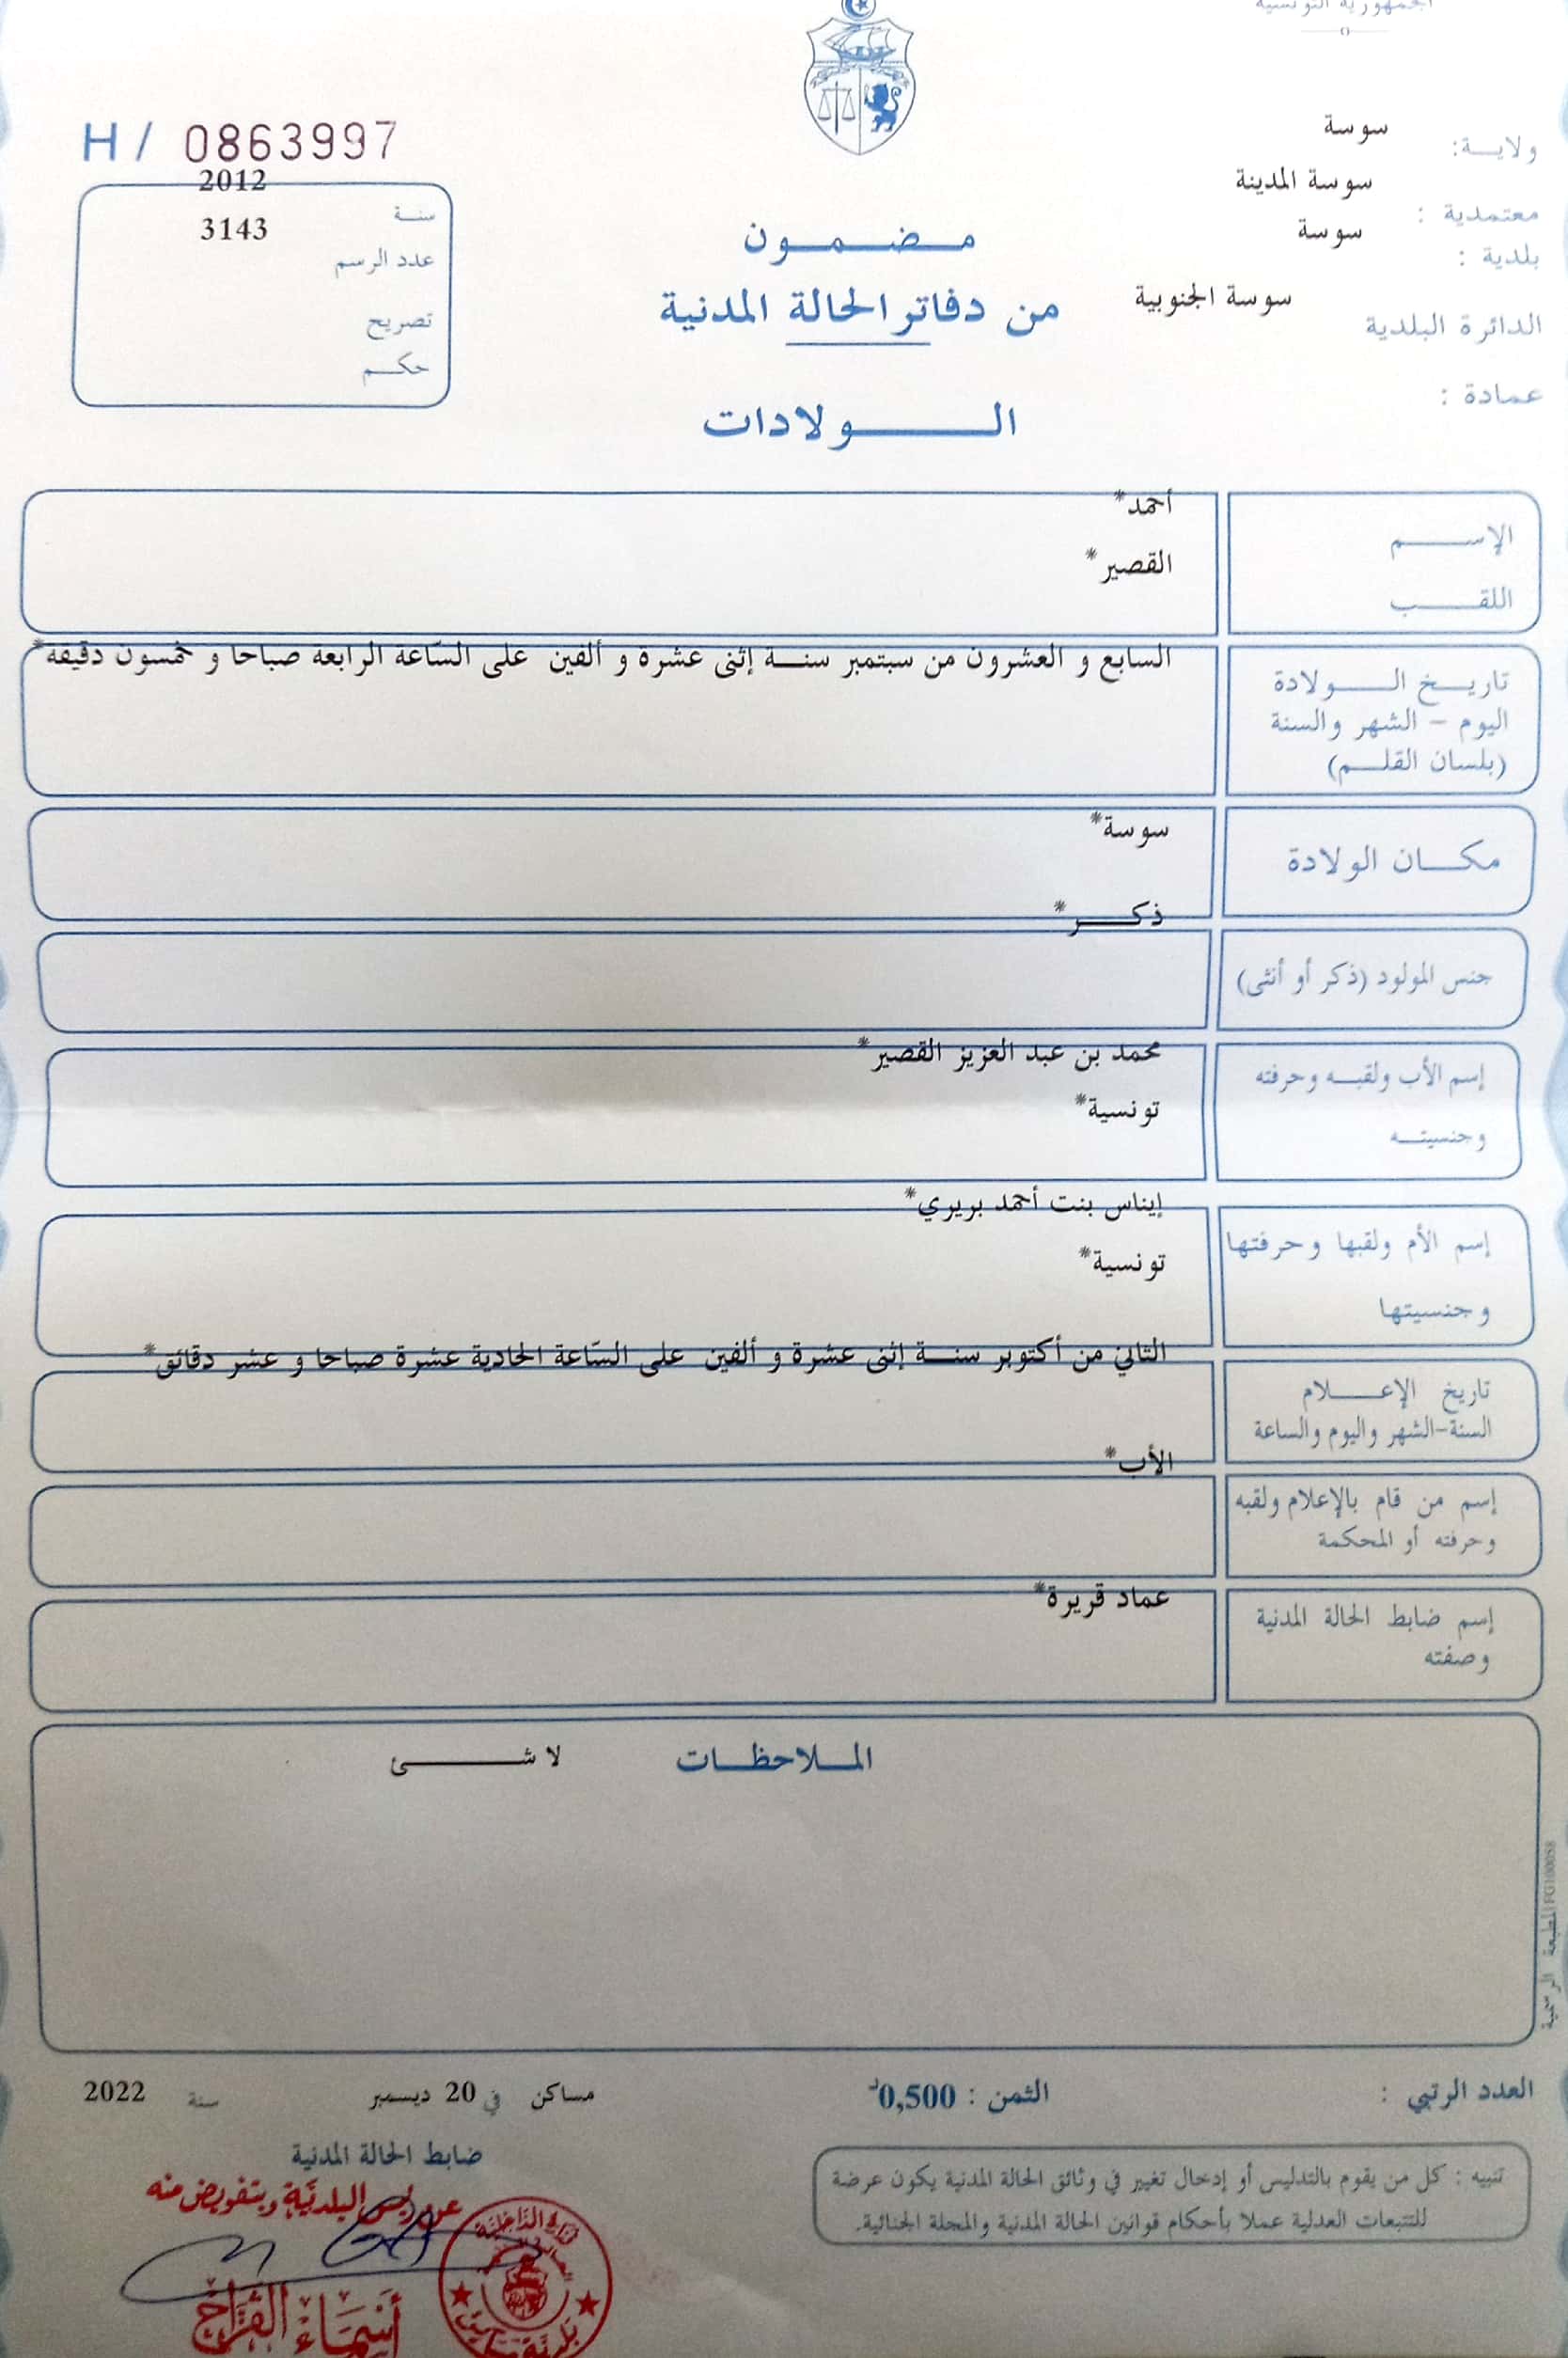 الجمهورية التونسية
ولاية: سوسة
معتمدية : سوسة المدينة
بلدية : سوسة
الدائرة البلدية سوسة الجنوبية
عمادة :
H/ 0863997
سنة 2012
عدد الرسم 3143
تصريح
حكم
مضمون
من دفاتر الحالة المدنية
الولادات
الإسم أحمد*
اللقب القصير*
تاريخ الولادة السابع و العشرون من سبتمبر سنة إثنى عشرة و ألفين على السّاعة الرابعة صباحا و خمسون دقيقة*
اليوم - الشهر والسنة
(بلسان القلم)
مكان الولادة سوسة*
جنس المولود (ذكر أو أنثى) ذكر*
إسم الأب ولقبه وحرفته محمد بن عبد العزيز القصير*
وجنسيته تونسية*
إسم الأم ولقبها وحرفتها إيناس بنت أحمد بريري*
وجنسيتها تونسية*
تاريخ الإعلام الثاني من أكتوبر سنة إثنى عشرة و ألفين على السّاعة الحادية عشرة صباحا و عشر دقائق*
السنة-الشهر واليوم والساعة
إسم من قام بالإعلام ولقبه الأب*
وحرفته أو المحكمة
إسم ضابط الحالة المدنية عماد قريرة*
وصفته
الملاحظات لا شئ
المطبعة الرسمية FG100058
العدد الرتبي :
الثمن : 0,500د
مساكن في 20 ديسمبر سنة 2022
ضابط الحالة المدنية
تنبيه : كل من يقوم بالتدليس أو إدخال تغيير في وثائق الحالة المدنية يكون عرضة
للتتبعات العدلية عملا بأحكام قوانين الحالة المدنية والمجلة الجنائية.
عن رئيس البلديّة وبتفويض منه
أسماء الفراج
وزارة الداخلية